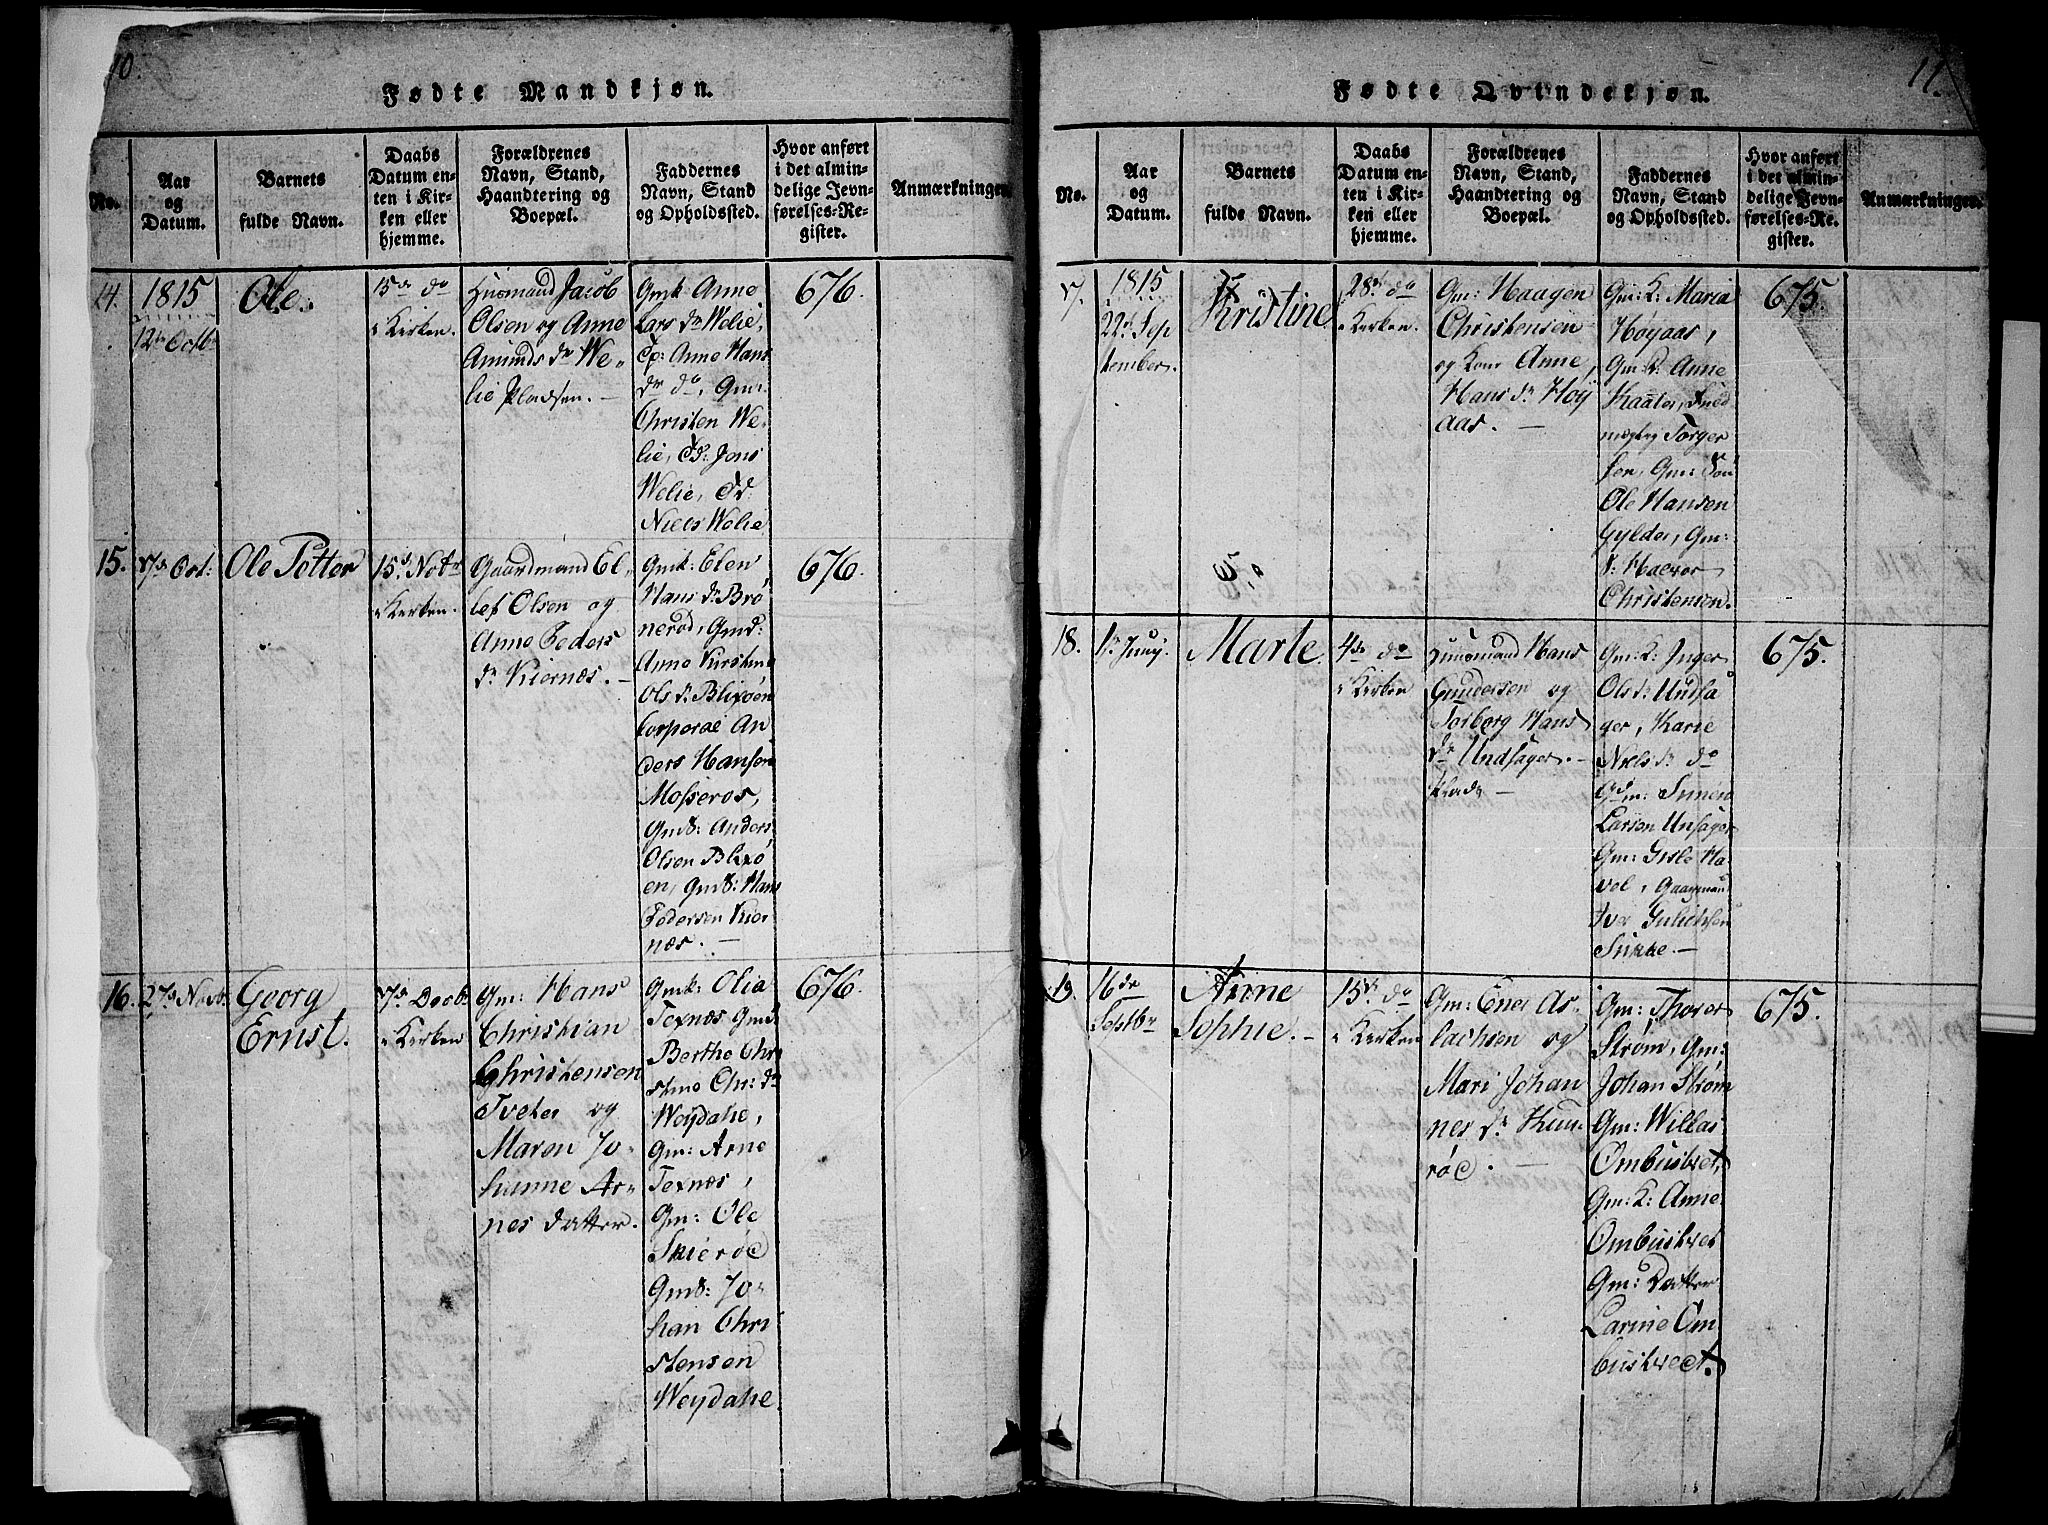 10.
Fødte Mandkjøn.
No.
Aar
og
Datum.
Barnets
fulde Navn.
Daabs
Datum en-
ten i Kir-
ken eller
hjemme.
Forældrenes
Navn, Stand,
Haandtering og
Boepæl.
Faddernes
Navn, Stand
og Opholdssted.
Hvor anført
i det almin-
delige Jevn-
førelses-Re-
gister.
Anmærkninger.
14.
1815
12te Octb
Ole.
15de do
i Kirken.
Huusmand Jacob
Olsen og Anne
Amunds dr We-
lie Pladsen. –
Gmk: Anne
Lars dr Welie,
Anne Hans
dr do, Gm:
Christen We-
lie, Jens
Welie,
Niels Welie
676.
15.
17de Oct:
Ole Petter
15de Nobr
i Kirken.
Gaardmand El-
lef Olsen og
Anne Peders
dr Kiernæs. –
Gmk: Elen
Hans dr Brø
nerød, Gmd:
Anne Kirstine
Ols dr Blixøen
Corporal An
ders Hansen
Mosserøs,
Gmd: Anders
Olsen Blixø
en, Gmd: Hans
Pedersen Kier
næs. –
676.
16.
27de Novb.
Georg
Ernst.
7de Decb:
i Kirken
Gm: Hans
Christian
Christensen
Tveter og
Maren Jo-
hanne Ar-
nes datter.
Gmk: Olia
Texnæs Gmd
Berthe Chri
stine Chr: dr
Weydahl,
Gm: Arne
Texnæs,
Gm: Ole
Skierøe
Gmd: Jo-
han Chri
stensen
Weydahl.
676.
11.
Fødte Qvindekjøn.
No.
Aar
og
Datum.
Barnets
fulde Navn.
Daabs
Datum en-
ten i Kir-
ken eller
hjemme.
Forældrenes
Navn, Stand,
Haandtering og
Boepæl.
Faddernes
Navn, Stand
og Opholdssted.
Hvor anført
i det almin-
delige Jevn-
førelses-Re-
gister.
Anmærkninger.
17.
1815
22de Sep
tember.
Kristine
28de do
i Kirken.
Gm: Haagen
Christensen
og Kone Anne
Hans dr Høy
aas. –
Gm: K: Maria
Høyaas,
Gm: K: Anne
Kaater,
Torger
sen, Gm: Søn
Ole Hansen
Gylder, Gm:
S: Halvor
Christensen.
675.
18.
1de Juny.
Marte.
4de do
i Kirken
Huusmand Hans
Gundersen og
Torborg Hans
dr Undsager. –
Plads –
Gm: K: Inger
Ols dr Undsa
ger, Karie
Niels dr do
Gdm: Simen
Larsen Unsager
Gm: Gisle Ha-
vel, Gaarman
Iver Gulichsen
Sukke –
675.
19.
16de
Septbr
Anne
Sophie. –
15de do
i Kirken
Gm: Ener As-
lachsen og
Mari Johan
nes dr Kun-
røe. –
Gm: Thorer
Strøm, Gm:
Johan Strøm
Gm: Willas
Ombustvet,
Gm: K: Anne
Ombustvet
Gm: Datter
Larine Om
bustvedt.
675.